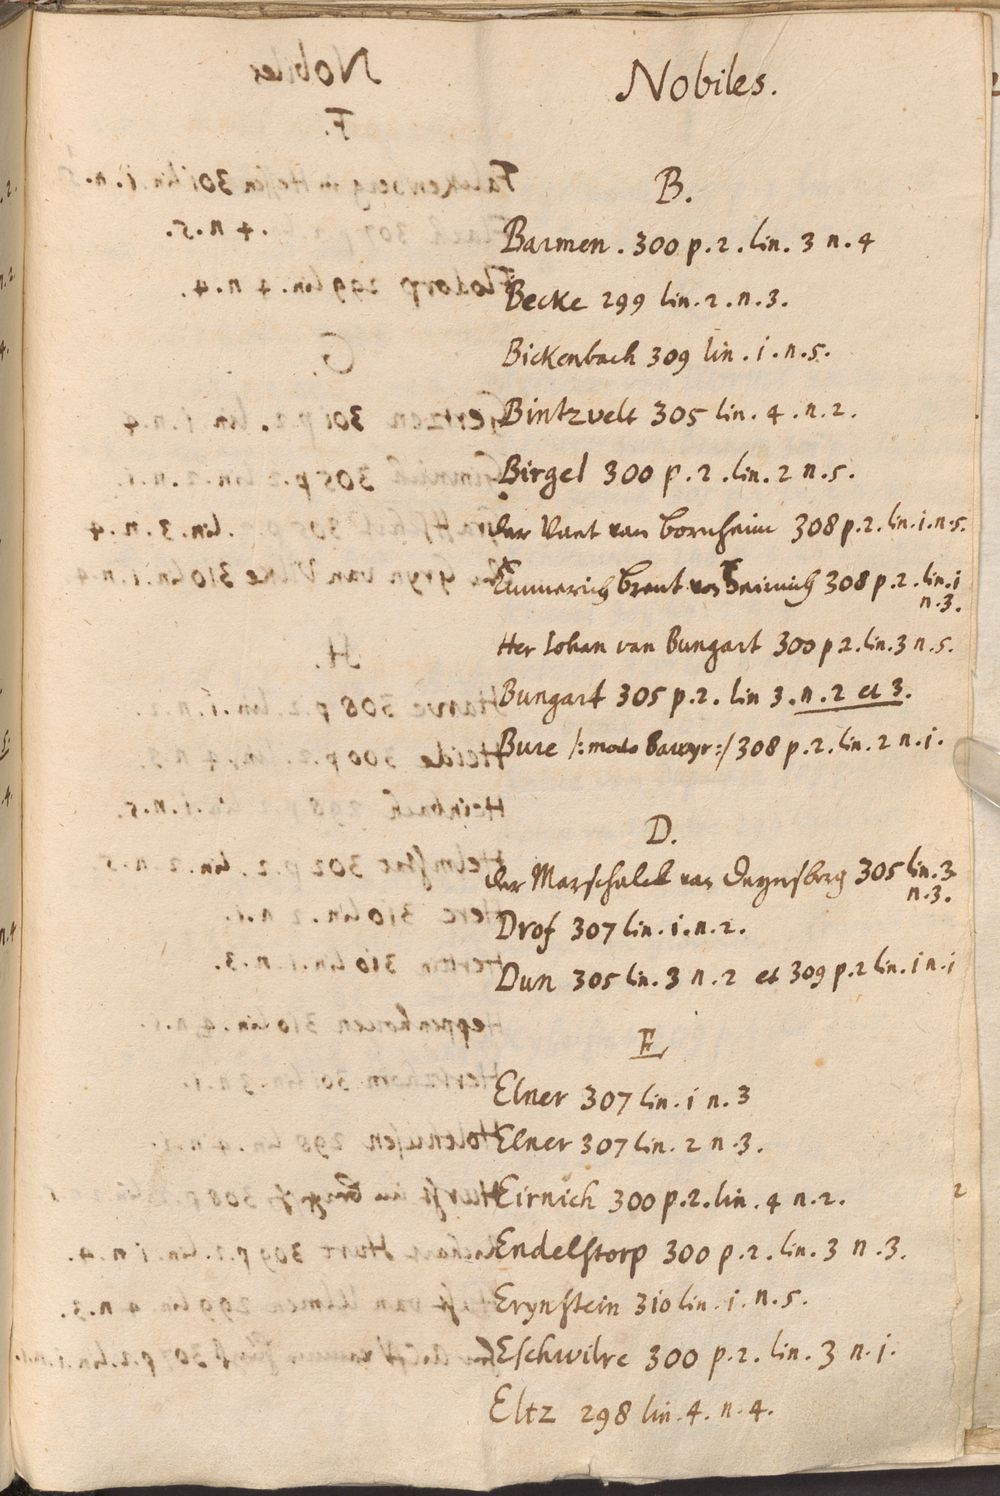 Nobiles.
B.
Barmen . 300 p. 2 . lin. 3 n. 4
Becke 299 lin. 2. n. 3.
Bickenbach 309 lin . i . n. 5.
Bintzvelt 305 lin. 4 . n. 2.
Birgel 300 p. 2 . lin. 2 n. 5.
der Vaet van Bornheim 308 p. 2. lin. i. n. 5.
Emmerich Brent von 308 p. 2. lin. i
n. 3.
Her Iohan van Bungart 300 p. 2. lin. 3 n. 5.
Bungart 305 p. 2. lin 3. n. 2 et 3.
Bure /: modo Bawyr :/ 308 p. 2. lin. 2 n. i.
D.
der Marschalck van Duynsberg 305 lin. 3
n. 3.
Drof 307 lin. i. n. 2.
Dun 305 lin. 3 n. 2 et 309 p. 2 lin. i n. i
E
Elner 307 lin. i n. 3
Elner 307 lin. 2 n. 3.
Eirnich 300 p. 2. lin. 4 n. 2.
Endelstorp 300 p. 2. lin. 3 n. 3.
Erynstein 310 lin. i. n. 5.
Eschwilre 300 p. 2. lin. 3 n. i.
Eltz 298 lin. 4. n. 4.